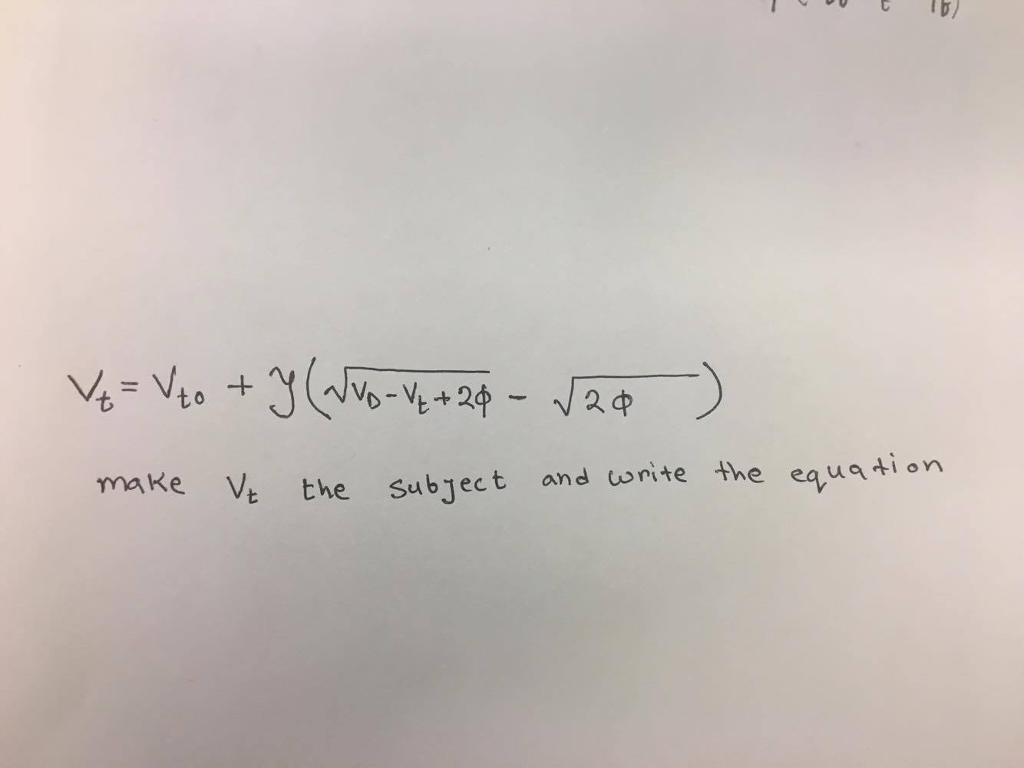 V_t = V_to + y(√(V_D - V_t + 2φ) - √(2φ))
make V_t the subject and write the equation